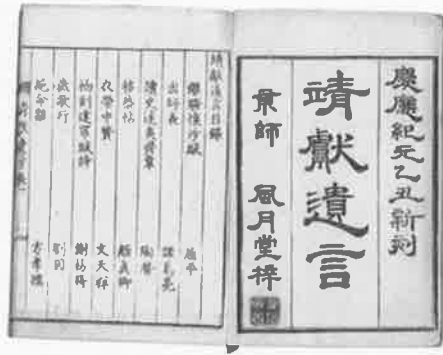 慶應紀元乙丑新刻
靖獻遺言
京師 風月堂梓
靖獻遺言目録
離騷懷沙賦 屈平
出師表 諸葛亮
讀史述夷齊章 陶潛
移蔡帖 顏眞卿
衣帶中賛 文天祥
初到建寧賦詩 謝枋得
歌行 劉因
絶命辭 方孝孺